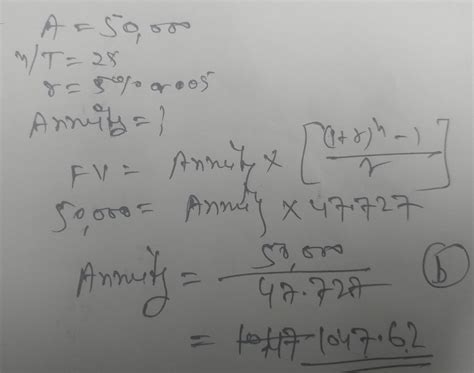 A = 50,000
n/T = 25
r = 5% or 005
Annuity = ?
FV = Annuity × [ (1+r)^n - 1 / r ]
50,000 = Annuity × 47.727
Annuity = 50,000 / 47.727
(b)
= 1047.62